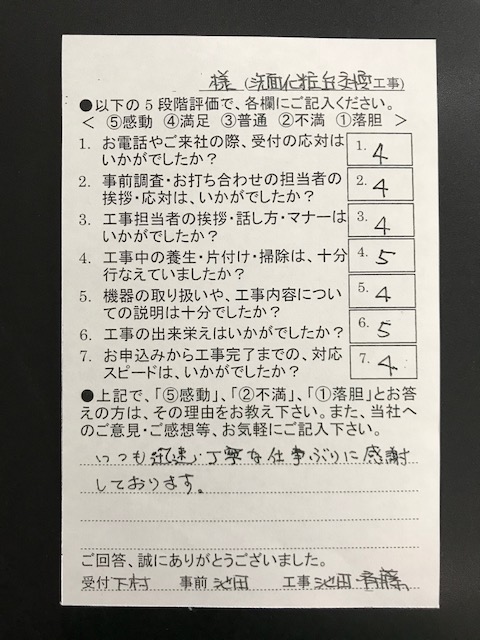 様(洗面化粧台交換工事)
●以下の5段階評価で、各欄にご記入ください。
< ⑤感動 ④満足 ③普通 ②不満 ①落胆 >
1. お電話やご来社の際、受付の応対は
いかがでしたか?
1. 4
2. 事前調査・お打ち合わせの担当者の
挨拶・応対は、いかがでしたか?
2. 4
3. 工事担当者の挨拶・話し方・マナーは
いかがでしたか?
3. 4
4. 工事中の養生・片付け・掃除は、十分
行なえていましたか?
4. 5
5. 機器の取り扱いや、工事内容につい
ての説明は十分でしたか?
5. 4
6. 工事の出来栄えはいかがでしたか?
6. 5
7. お申込みから工事完了までの、対応
スピードは、いかがでしたか?
7. 4
●上記で、「⑤感動」、「②不満」、「①落胆」とお答
えの方は、その理由をお教え下さい。また、当社へ
のご意見・ご感想等、お気軽にご記入下さい。
いつも迅速・丁寧な仕事ぶりに感謝
しております。
ご回答、誠にありがとうございました。
受付 下村 事前 池田 工事 池田 斉藤